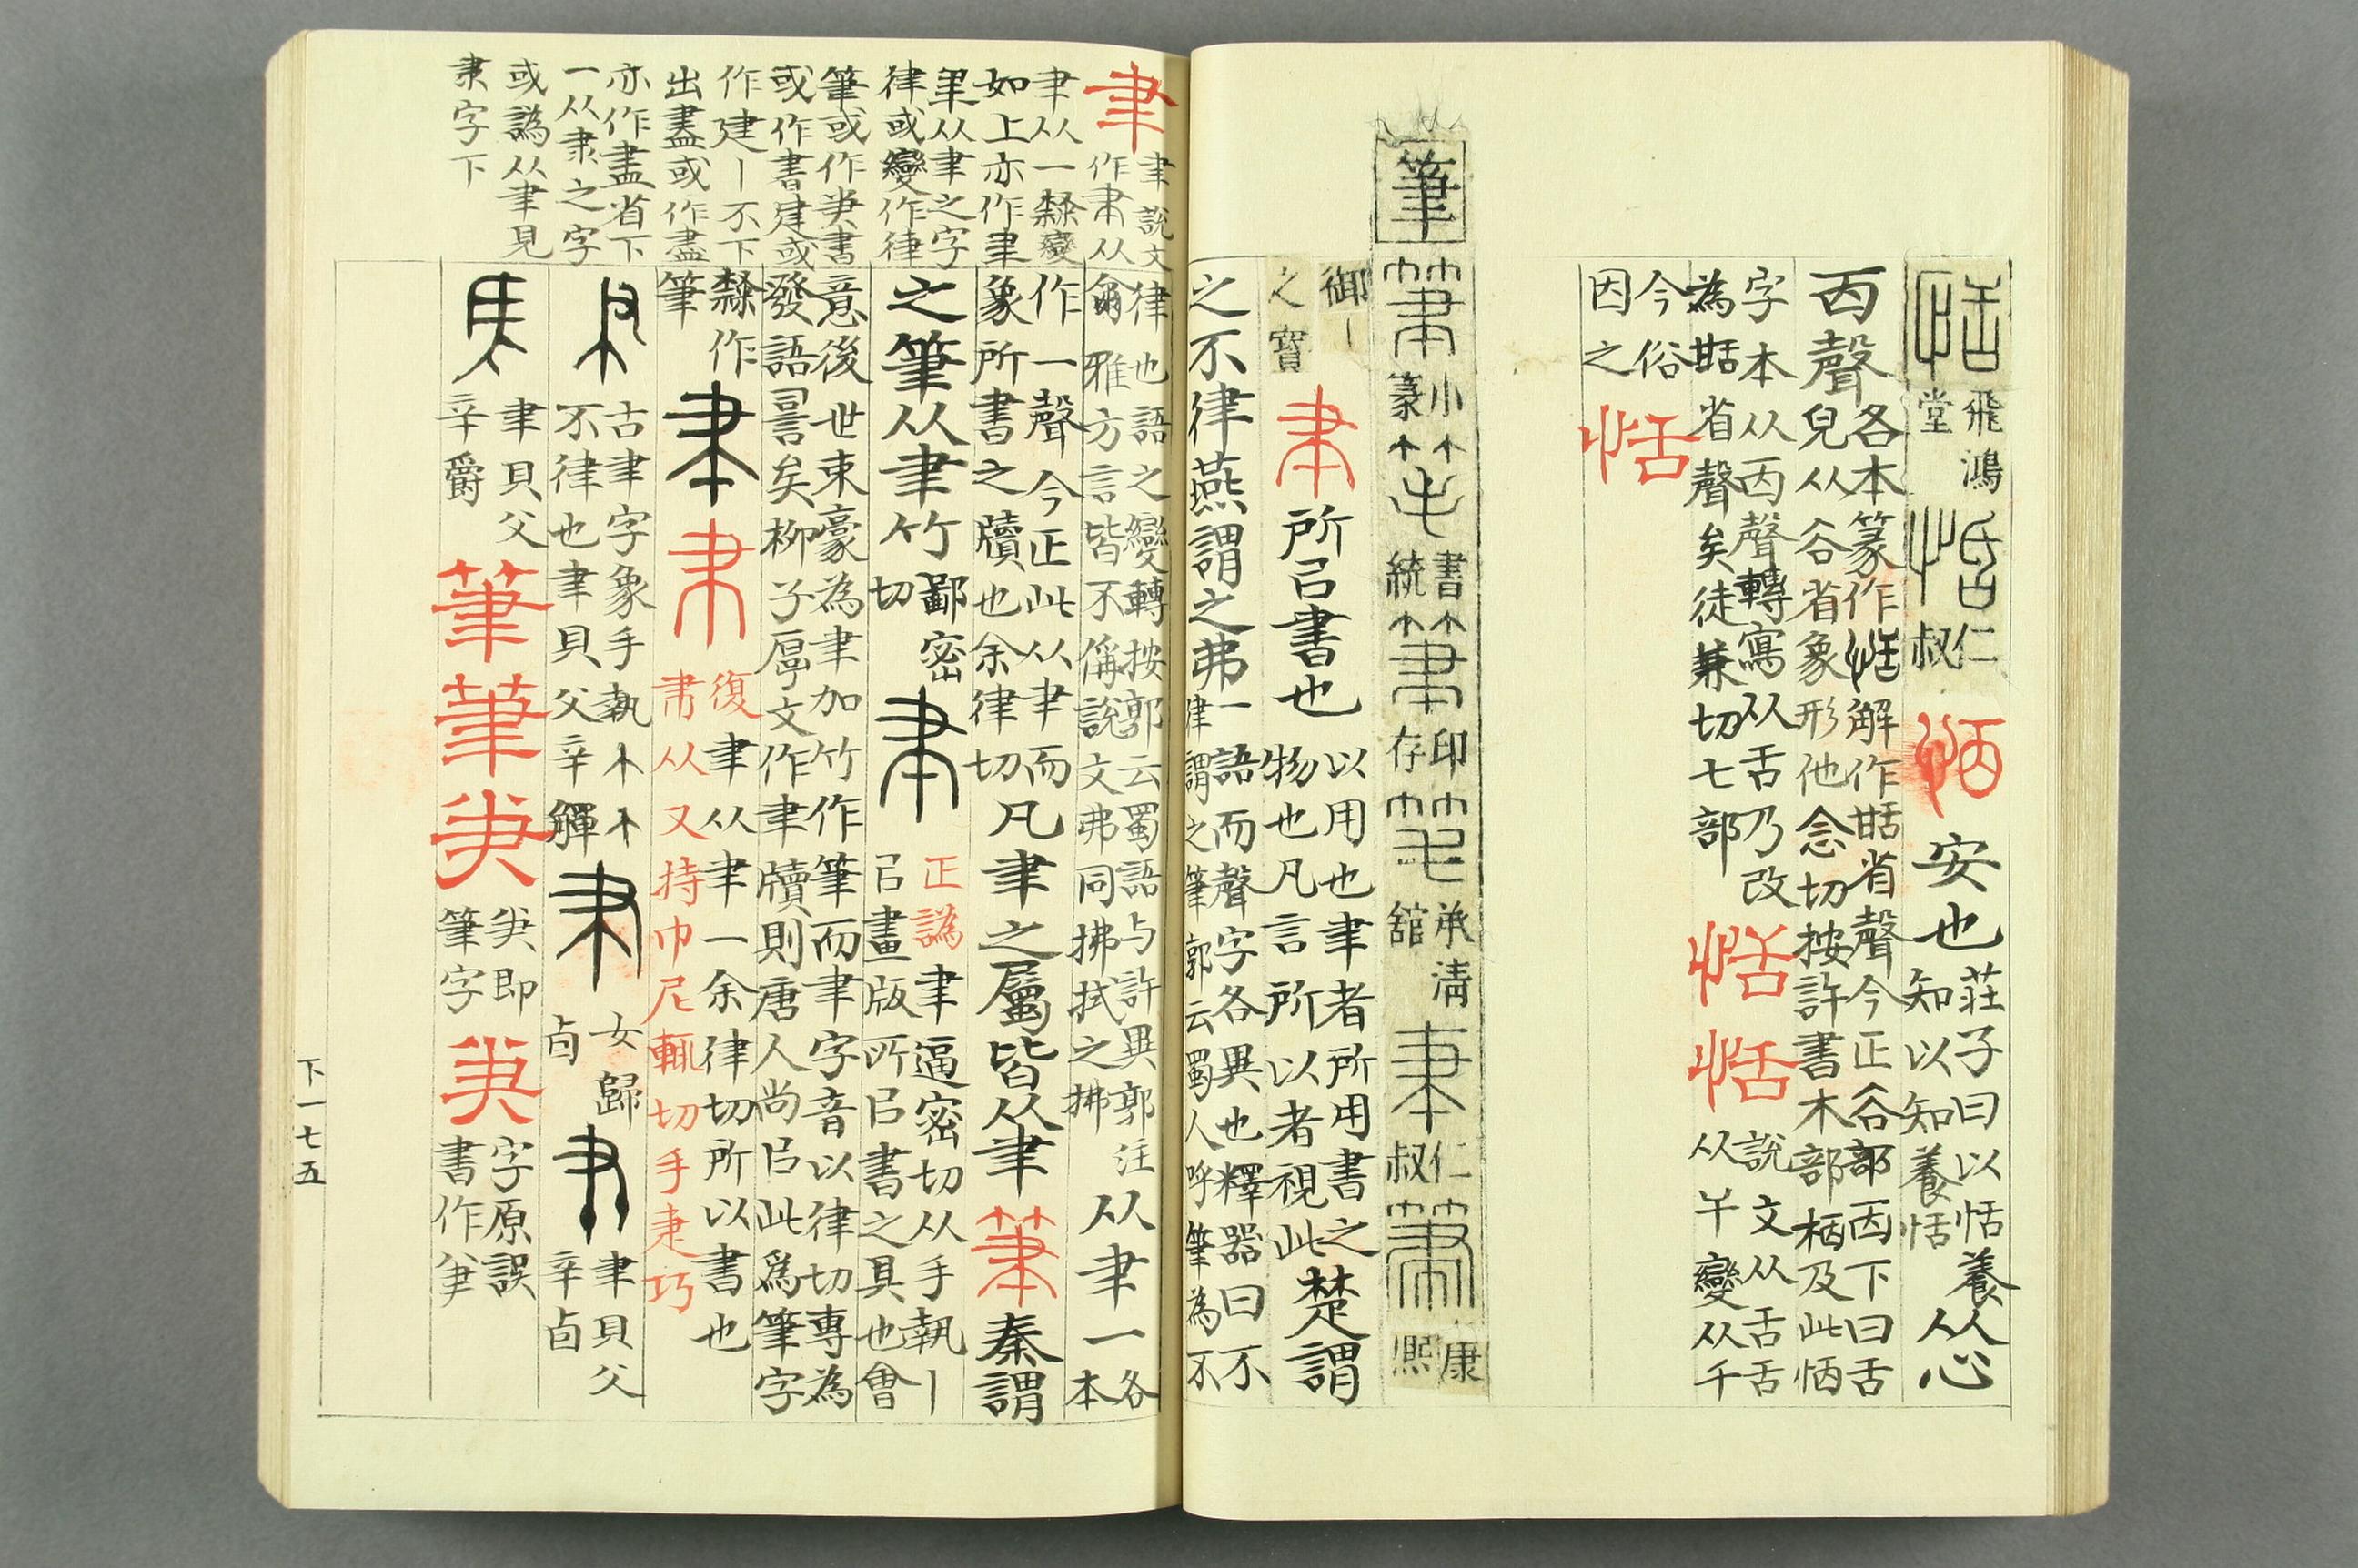 恬 飛鴻堂 恬 仁叔 恬 安也 莊子曰以恬養知以知養恬 从心
㐁聲 各本篆作恬解作甛省聲今正谷部㐁下曰舌皃从谷省象形他念切按許書木部栖及此恬
字本从㐁聲轉寫从舌乃改為甛省聲矣徒兼切七部 恬恬 說文从舌舌从午變从千
今俗因之 恬
筆 筆 小篆 書統 筆 印存 承清舘 聿 仁叔 筆 康熙
御｜之寶 聿 所㠯書也 以用也聿者所用書之物也凡言所以者視此 楚謂
之不律燕謂之弗 一語而聲字各異也釋器曰不律謂之筆郭云蜀人呼筆為不
聿 聿說文作聿从
聿从一隸變
如上亦作聿
聿从聿之字
律或變作律
筆或作笔書
或作書建或
作建｜不下
出盡或作盡
亦作盡省下
一从隶之字
或譌从聿見
隶字下
律也語之變轉按郭云蜀語与許異郭注爾雅方言皆不偁說文弗同拂拭之拂 从聿一 各本
作一聲今正此从聿而象所書之牘也余律切 凡聿之屬皆从聿 筆 秦謂
之筆从聿竹 鄙密切 聿 正譌 聿逼密切从手執｜㠯畫版所㠯書之具也會
意後世束豪為聿加竹作筆而聿字音以律切專為發語詞矣柳子厚文作聿牘則唐人尚㠯此爲筆字
隸作筆 聿 聿 復聿从聿一余律切所以書也 肀从又持巾尼輒切手疌巧
古聿字象手執不律也聿貝父辛觶 聿 女歸卣 聿 聿貝父辛卣
聿貝父辛爵 筆筆 即筆字 字原誤書作
下一七五